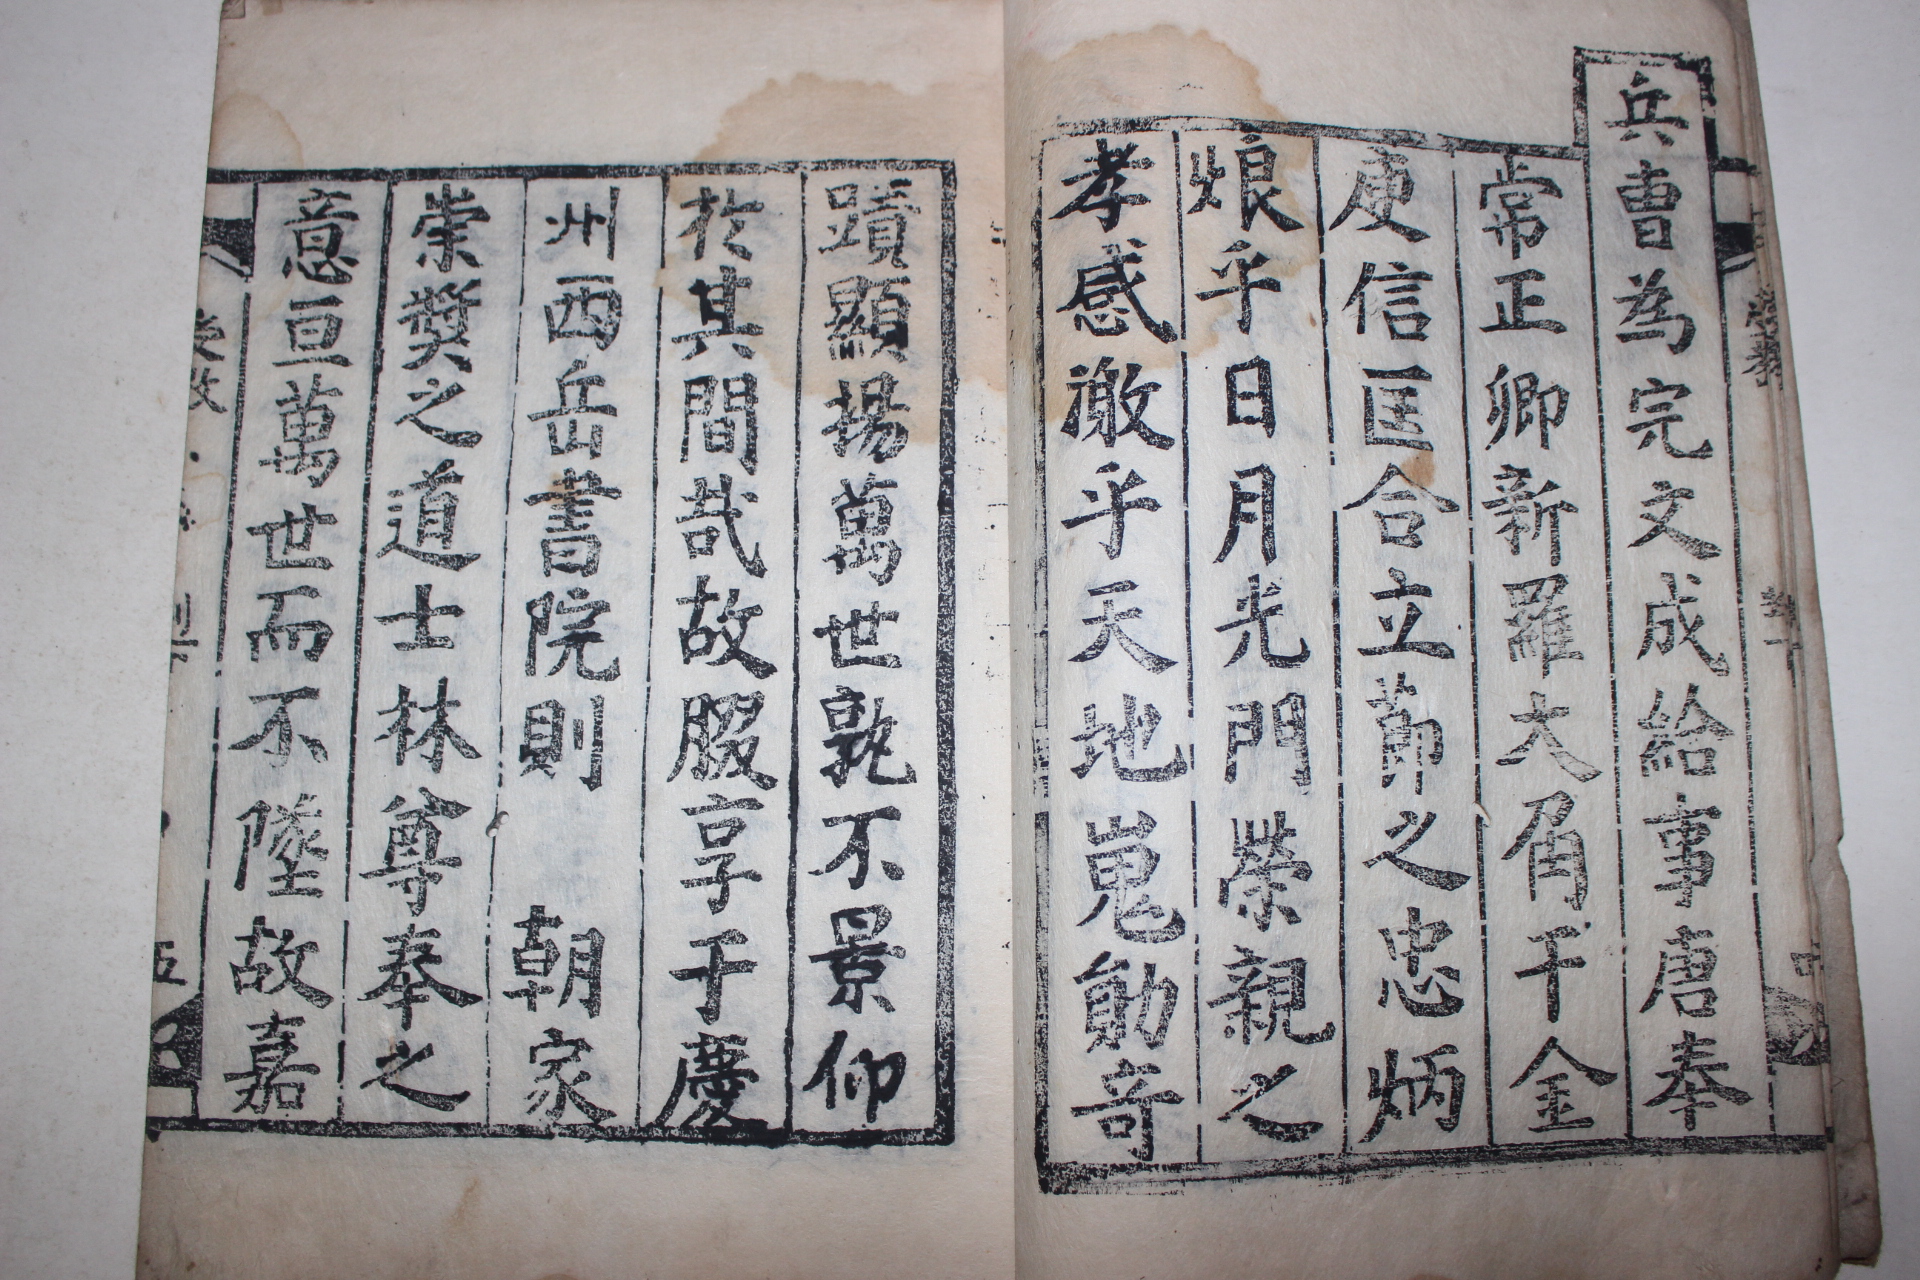 兵曹為完文成給事唐奉
常正卿新羅大角干金
庾信匡合立節之忠炳
烺乎日月光門榮親之
孝感徹乎天地嵬勛奇
蹟顯揚萬世孰不景仰
於其間哉故腏享于慶
州西岳書院則 朝家
崇奬之道士林尊奉之
意亘萬世而不墜故嘉
五